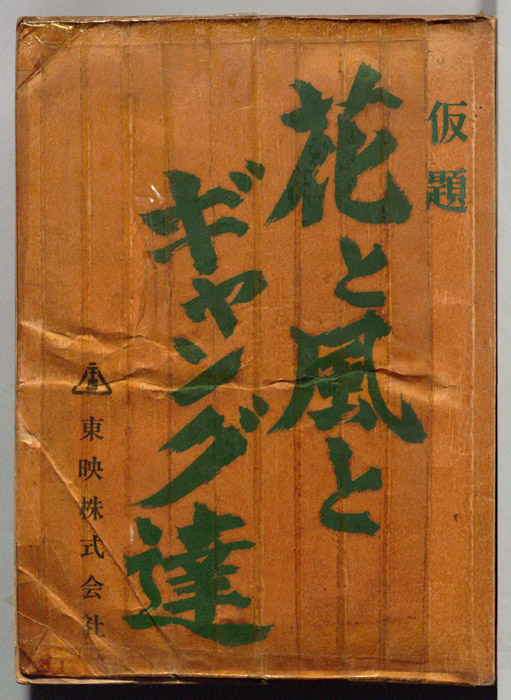 仮題
花と風と
ギャング達
東映株式会社